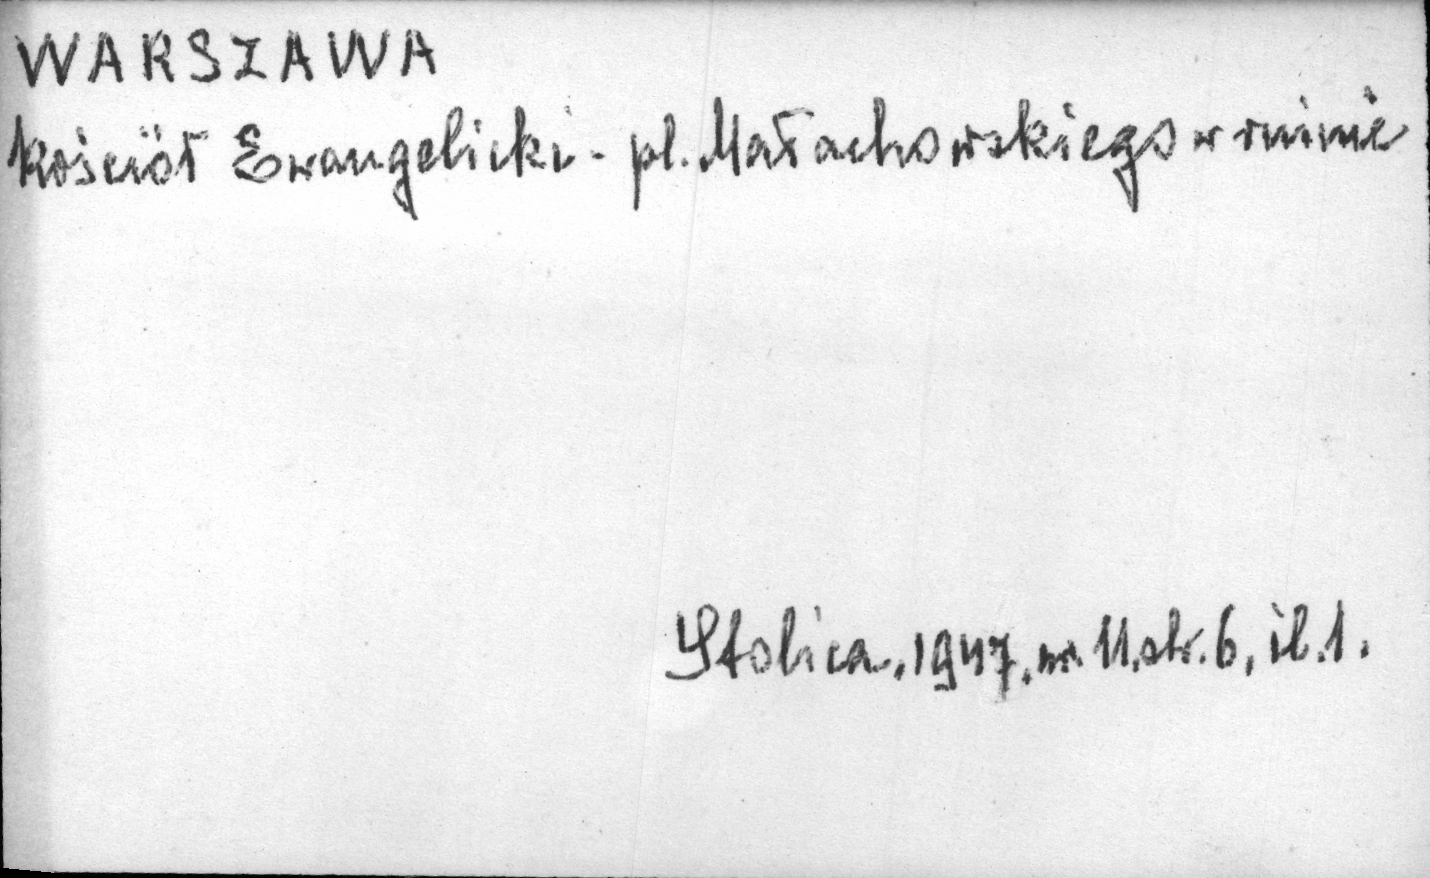 WARSZAWA
Kościół Ewangelicki - pl. Małachowskiego w ruinie
Stolica, 1947, nr. 11, str. 6, il. 1.